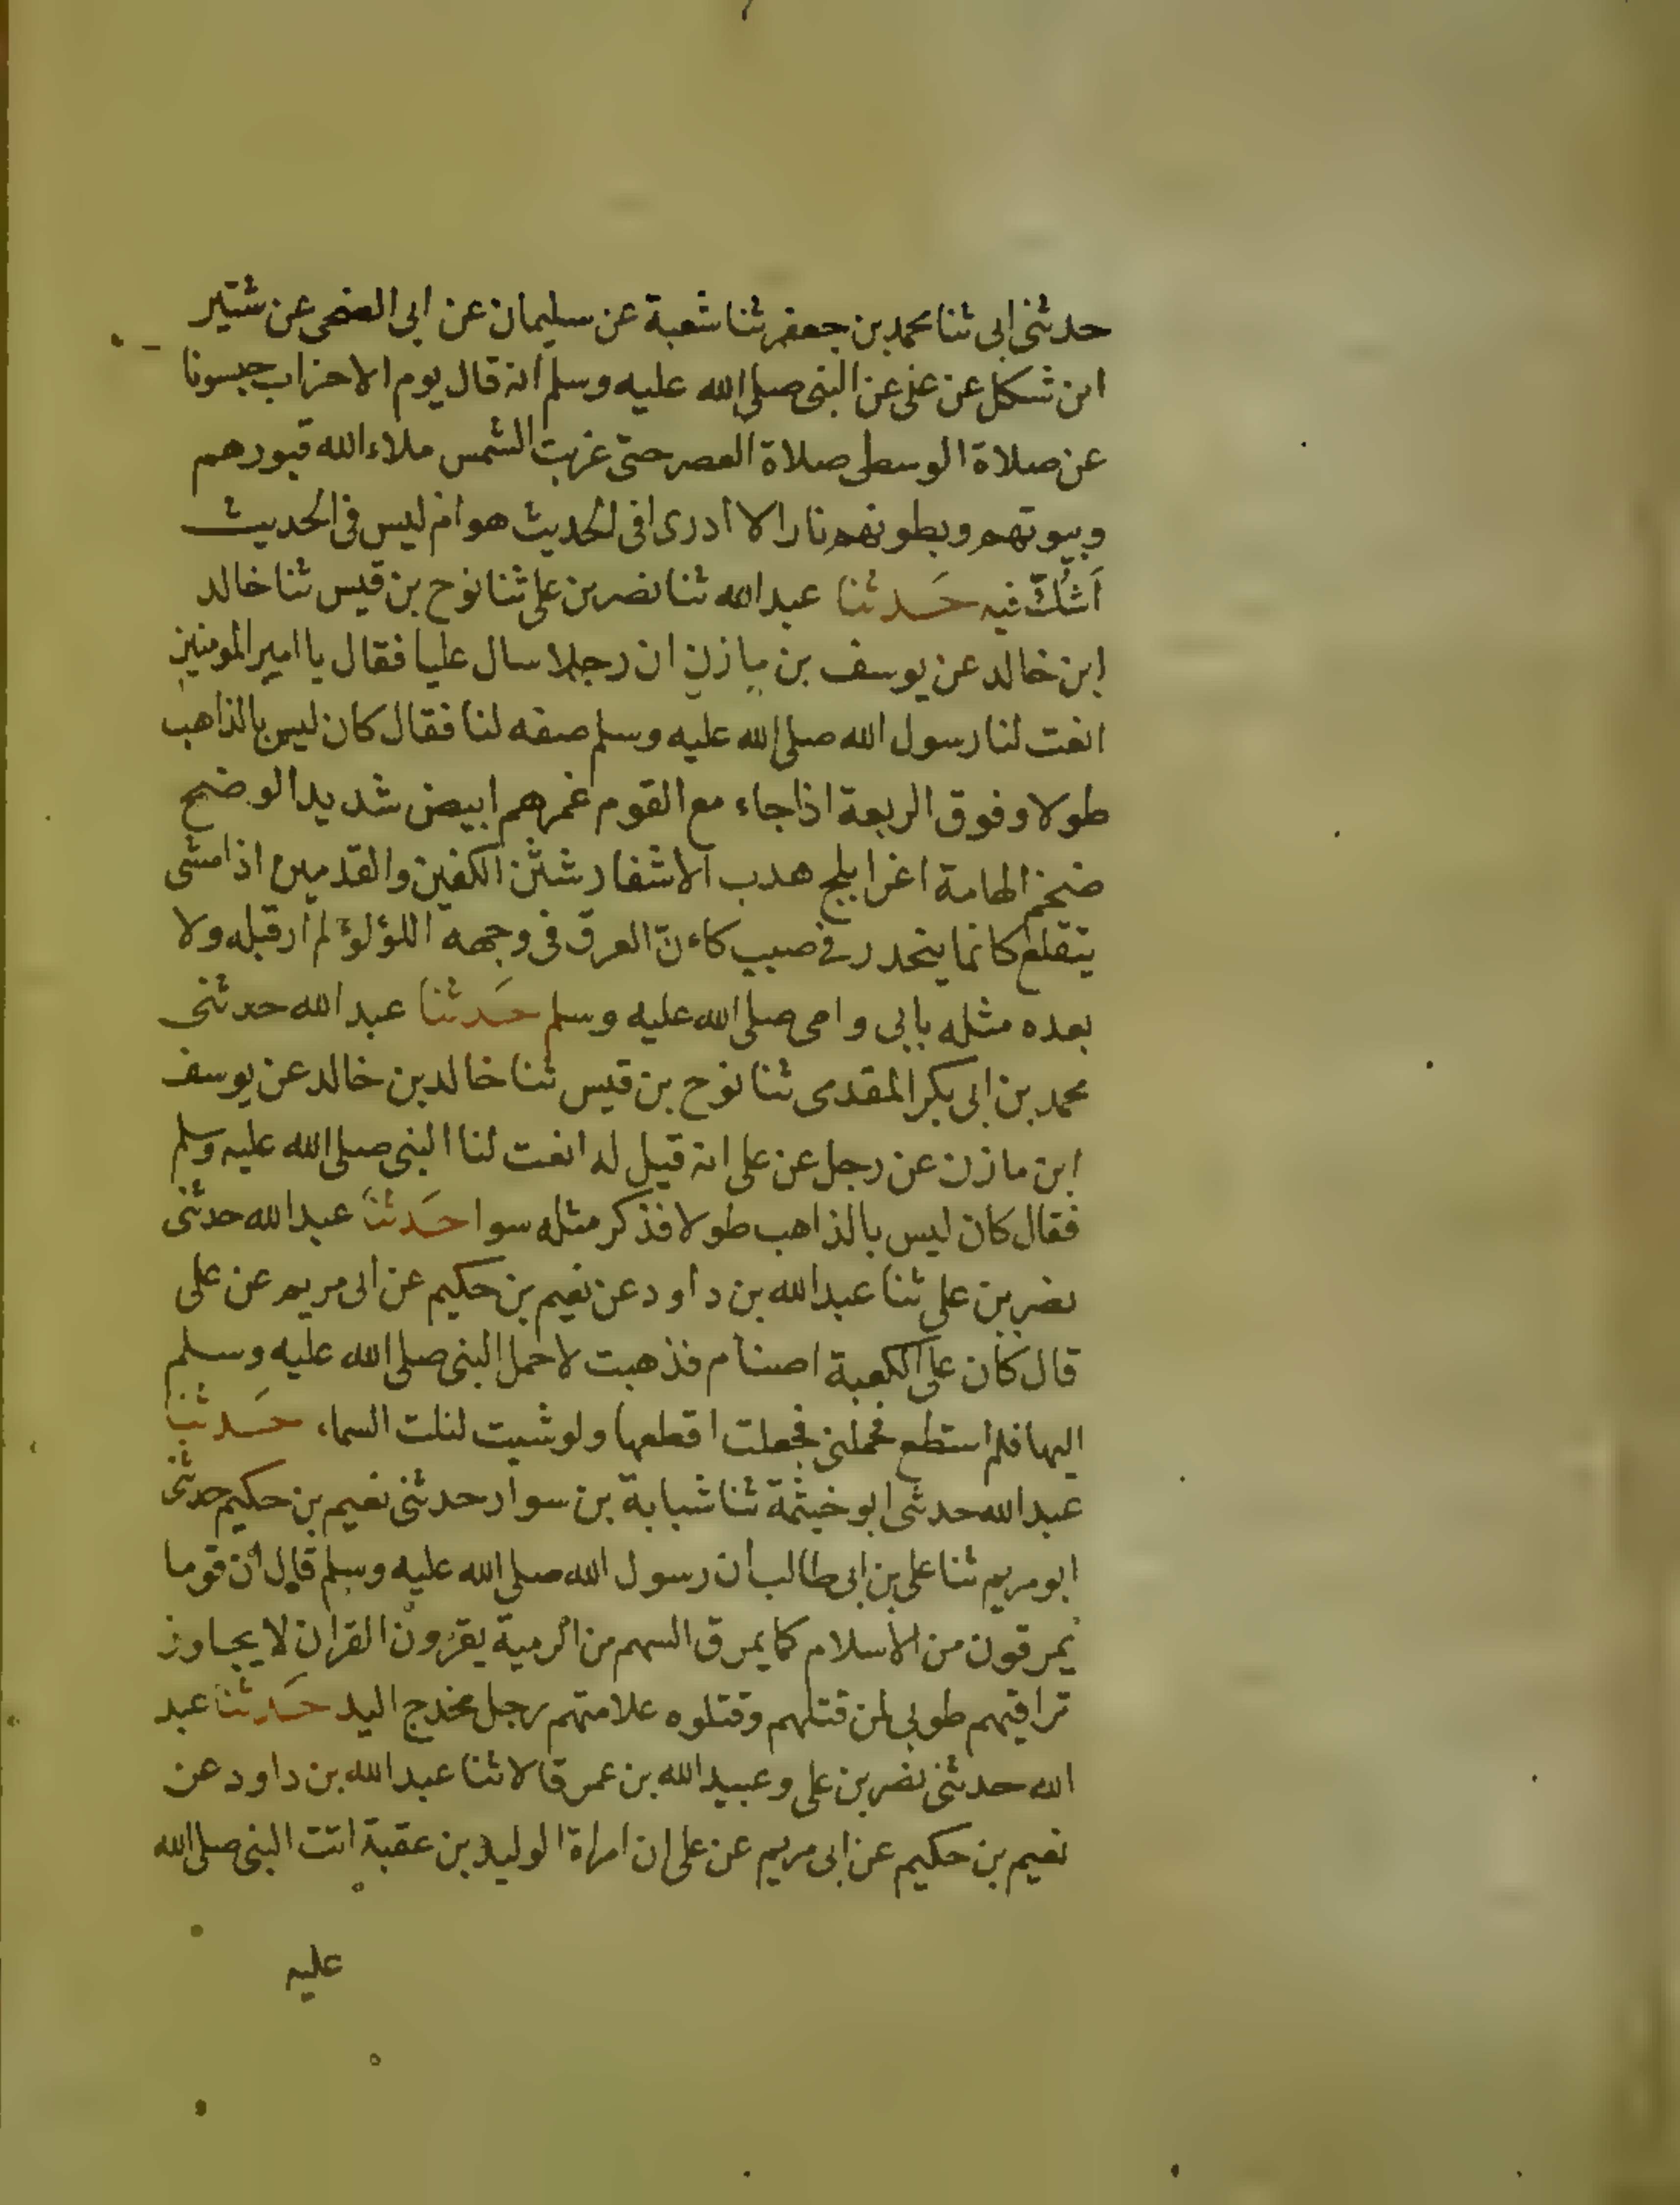 حدثنى ابى ثنا محمد بن جعفر ثنا شعبة عن سليمان عن ابى الضحى عن شتير
ابن شكل عن على عن النبى صلى الله عليه وسلم انه قال يوم الاحزاب حبسونا
عن صلاة الوسطى صلاة العصر حتى غربت الشمس ملاء الله قبورهم
وبيوتهم وبطونهم نارا لا ادرى افى الحديث هو ام ليس فى الحديث
اَشُكّ فيه حَدثنا عبد الله ثنا نصر بن على ثنا نوح بن قيس ثنا خالد
ابن خالد عن يوسف بن مازن ان رجلا سال عليا فقال يا امير المومنين
انعت لنا رسول الله صلى الله عليه وسلم صفه لنا فقال كان ليس بالذاهب
طولا وفوق الربعة اذا جاء مع القوم غمرهم ابيض شديد الوضح
ضخم الهامة اغر ابلج هدب الاشفار شثن الكفين والقدمين اذا مشى
يتقلع كانما ينحدر فى صبب كاءنّ العرق فى وجهه اللؤلؤ لم ار قبله ولا
بعده مثله بابى وامى صلى الله عليه وسلم حَدثنا عبد الله حدثنى
محمد بن ابى بكر المقدمى ثنا نوح بن قيس ثنا خالد بن خالد عن يوسف
ابن مازن عن رجل عن على انه قيل له انعت لنا النبى صلى الله عليه وسلم
فقال كان ليس بالذاهب طولا فذكر مثله سوا حَدثنا عبد الله حدثنى
نصر بن على ثنا عبد الله بن داود عن نعيم بن حكيم عن ابى مريم عن على
قال كان على الكعبة اصنام فذهبت لاحمل النبى صلى الله عليه وسلم
اليها فلم استطع فحملنى فجعلت اقطعها ولو شيت لنلت السماء حَدثنا
عبد الله حدثنى ابو خيثمة ثنا شبابة بن سوار حدثنى نعيم بن حكيم حدثنى
ابو مريم ثنا على بن ابى طالب ان رسول الله صلى الله عليه وسلم قال ان قوما
يمرقون من الاسلام كما يمرق السهم من الرمية يقرؤن القران لا يجاوز
تراقيهم طوبى لمن قتلهم وقتلوه علامتهم رجل مخدج اليد حَدثنا عبد
الله حدثنى نصر بن على وعبيد الله بن عمر قالا ثنا عبد الله بن داود عن
نعيم بن حكيم عن ابى مريم عن على ان امراة الوليد بن عقبة اتت النبى صلى الله
عليه